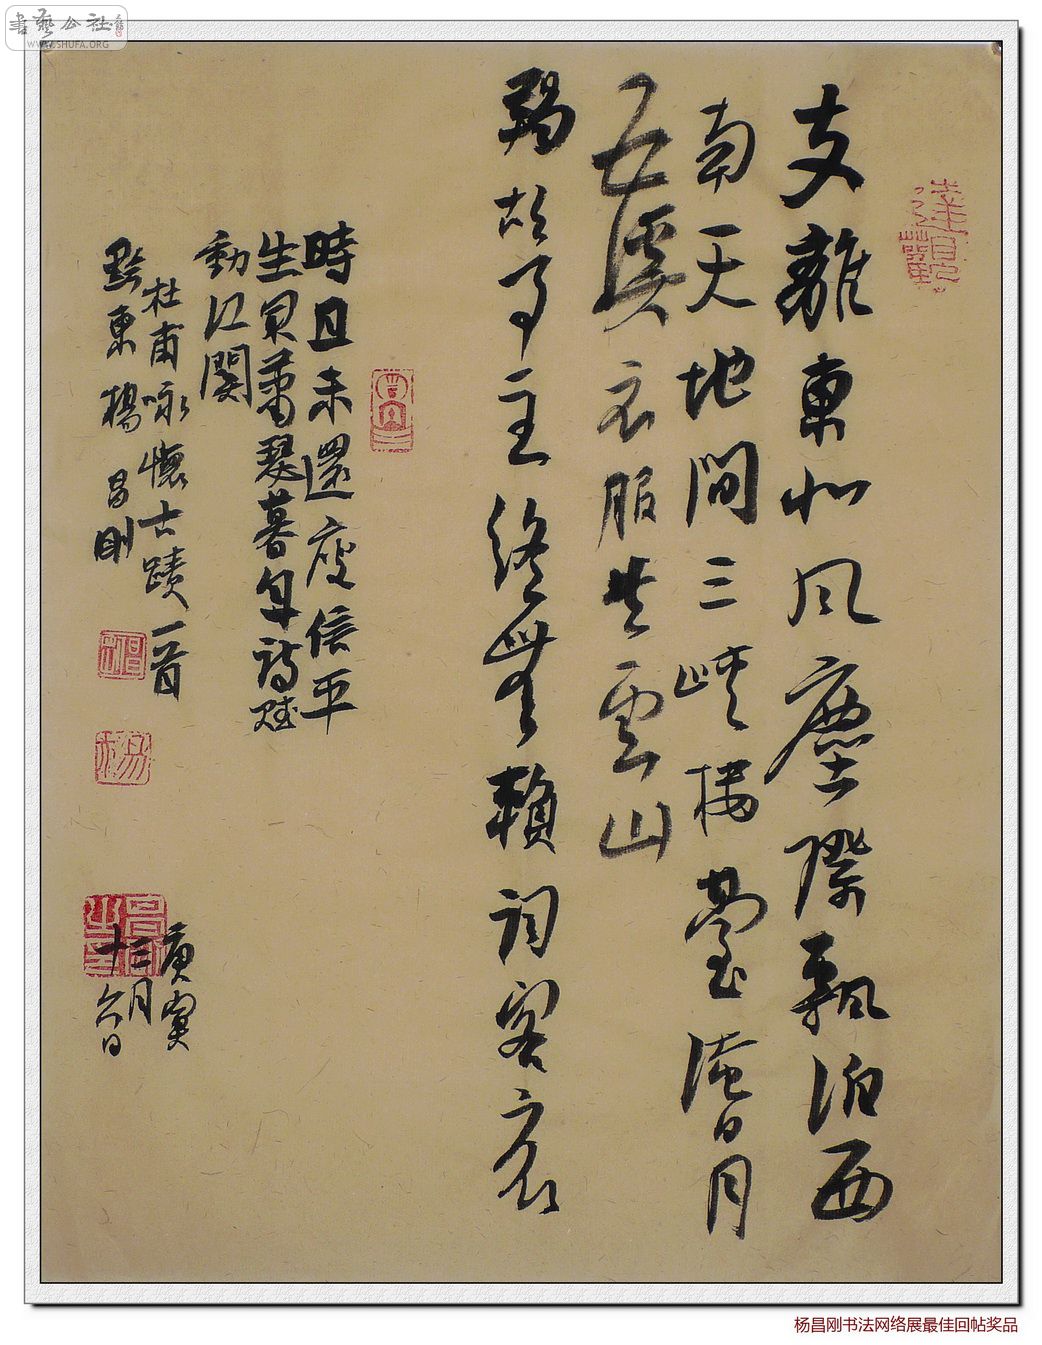 書藝公社
WWW.SHUFA.ORG
達觀
支離東北風塵際飄泊西
南天地間三峽樓臺淹日月
五溪衣服共雲山
羯胡事主終無賴詞客哀
時且未還庾信平
生最蕭瑟暮年詩賦
動江關
杜甫咏懷古蹟一首
黔東楊昌剛
庚寅
十二月
六日
杨昌刚书法网络展最佳回帖奖品